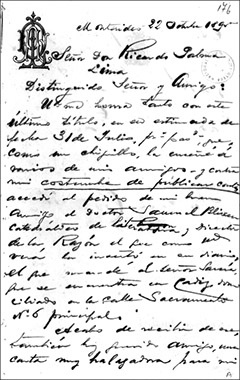 176
Montevideo 22 Octubre 1895
Señor Don Ricardo Palma
Lima
Distinguido Señor y Amigo:
Ud me honra tanto con este
último título, en su estimada de
fecha 31 de Julio, pº pasº que
como un chiquillo, la enseñé á
varios de mis amigos, y contra
mi costumbre de publicar cartas
accedí al pedido de mi buen
Amigo el Doctor Samuel Blixen
catedrático de Literatura, y director
de La Razón el que como Ud
verá la insertó en su diario,
el que mandé al señor García
que se encuentra en Cádiz dom
ciliado en la calle Sacramento
Nº 6 principal.
Acabo de recibir de ese
también querido amigo, una
carta muy halagadora para mi